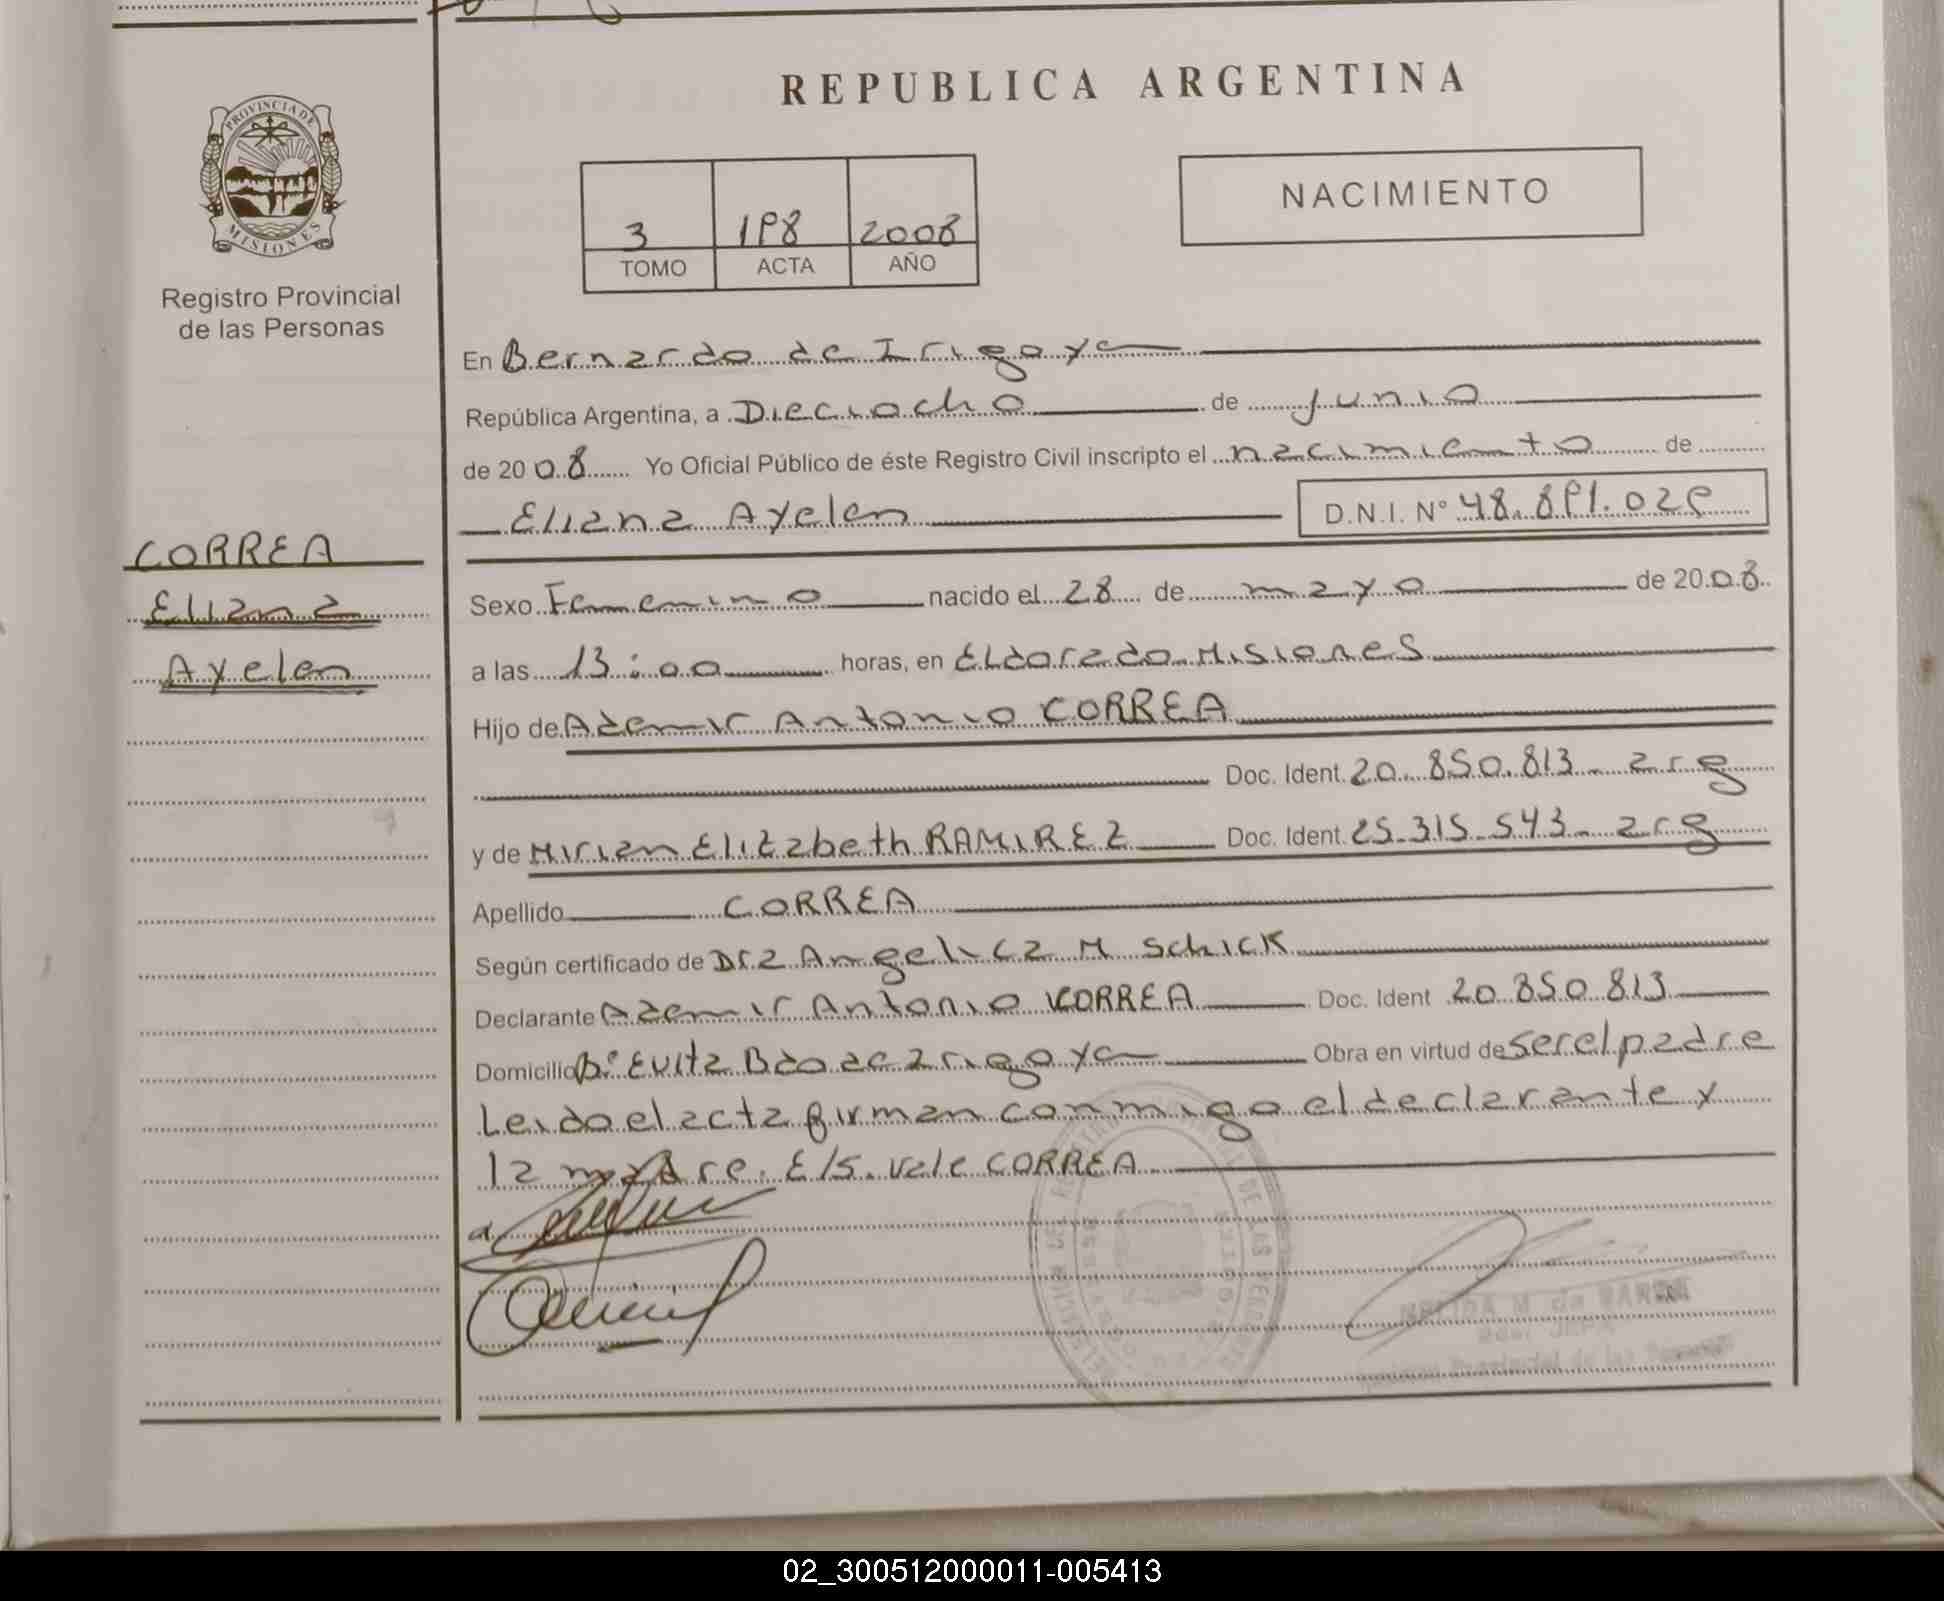 REPUBLICA ARGENTINA
PROVINCIA DE
MISIONES
Registro Provincial
de las Personas
3 198 2008
TOMO ACTA AÑO
NACIMIENTO
En Bernardo de Irigoye
República Argentina, a Dieciocho de junio
de 2008 Yo Oficial Público de éste Registro Civil inscripto el nacimiento de
Eliana Ayelen D.N.I. N° 48.891.029
CORREA
Eliana
Ayelen
Sexo Femenino nacido el 28 de mayo de 2008
a las 13:00 horas, en Eldorado Misiones
Hijo de Ademir Antonio CORREA
Doc. Ident. 20.850.813 - arg
y de Mirian Elizabeth RAMIREZ Doc. Ident. 25.315.543 - arg
Apellido CORREA
Según certificado de Dra Angelica M Schick
Declarante Ademir Antonio CORREA Doc. Ident 20.850.813
Domicilio B° Evita Bdo de Irigoye Obra en virtud de ser el padre
Leido el acta firman conmigo el declarante y
la madre. E/S. vale CORREA
02_300512000011-005413